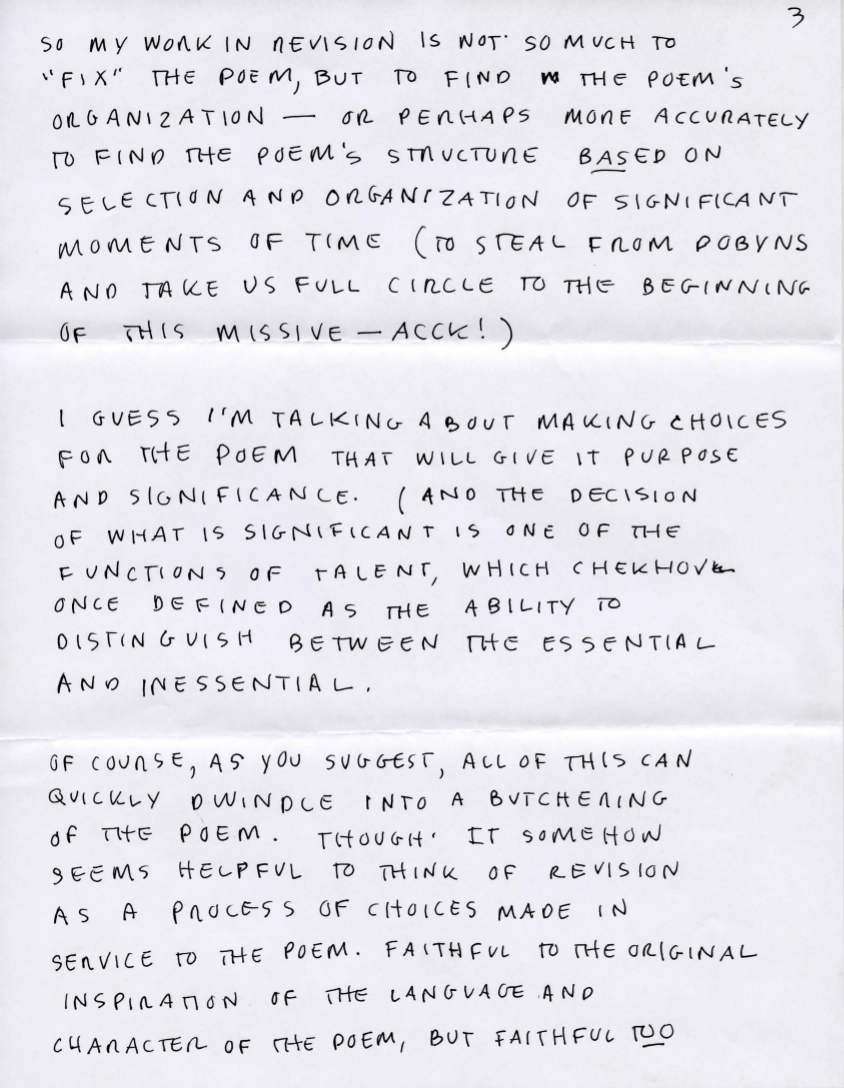 3
SO MY WORK IN REVISION IS NOT SO MUCH TO
"FIX" THE POEM, BUT TO FIND THE POEM'S
ORGANIZATION — OR PERHAPS MORE ACCURATELY
TO FIND THE POEM'S STRUCTURE BASED ON
SELECTION AND ORGANIZATION OF SIGNIFICANT
MOMENTS OF TIME (TO STEAL FROM DOBYNS
AND TAKE US FULL CIRCLE TO THE BEGINNING
OF THIS MISSIVE — ACCK!)
I GUESS I'M TALKING ABOUT MAKING CHOICES
FOR THE POEM THAT WILL GIVE IT PURPOSE
AND SIGNIFICANCE. (AND THE DECISION
OF WHAT IS SIGNIFICANT IS ONE OF THE
FUNCTIONS OF TALENT, WHICH CHEKHOV
ONCE DEFINED AS THE ABILITY TO
DISTINGUISH BETWEEN THE ESSENTIAL
AND INESSENTIAL.
OF COURSE, AS YOU SUGGEST, ALL OF THIS CAN
QUICKLY DWINDLE INTO A BUTCHERING
OF THE POEM. THOUGH IT SOMEHOW
SEEMS HELPFUL TO THINK OF REVISION
AS A PROCESS OF CHOICES MADE IN
SERVICE TO THE POEM. FAITHFUL TO THE ORIGINAL
INSPIRATION OF THE LANGUAGE AND
CHARACTER OF THE POEM, BUT FAITHFUL TOO